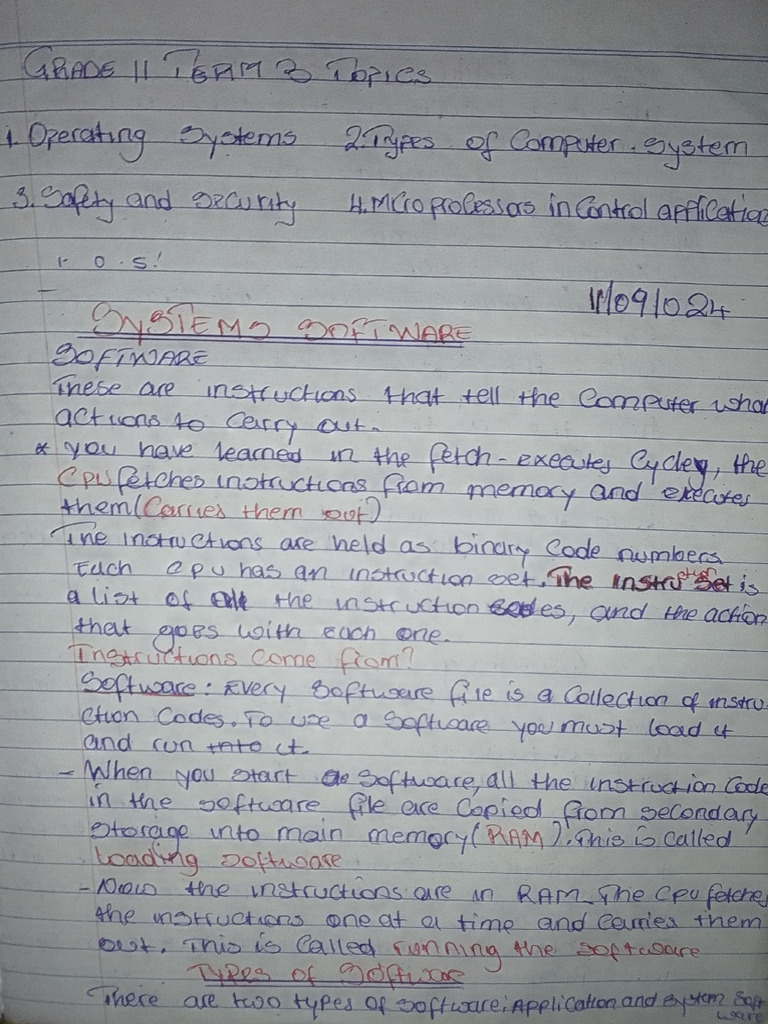 GRADE 11 TERM 3 TOPICS
1. Operating Systems 2. Types of Computer. System
3. Safety and security 4. Microprocessors in Control application
1. O.S!
11/09/024
SYSTEMS SOFTWARE
SOFTWARE
These are instructions that tell the Computer wha
actions to carry out.
* you have learned in the fetch-executes Cycle, the
CPU fetches instructions from memory and executes
them (Carries them out)
The instructions are held as binary Code numbers
Each CPU has an instruction set. The instruction set is
a list of all the instruction codes, and the action
that goes with each one.
Instructions Come from?
Software: Every Software file is a Collection of instru-
ction Codes. To use a Software you must load it
and run into it.
- When you start a Software, all the instruction Code
in the software file are Copied from secondary
Storage into main memory (RAM). This is called
Loading Software
- Now the instructions are in RAM. The CPU fetches
the instructions one at a time and Carries them
out. This is Called running the software
Types of Software
There are two types of software: Application and System Soft
ware